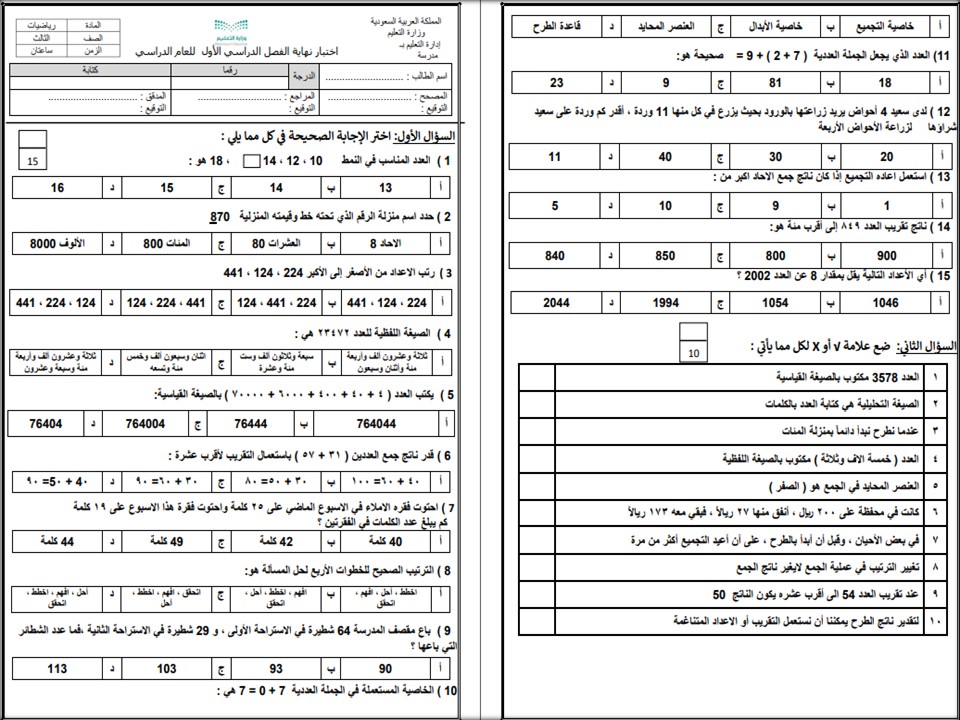 المملكة العربية السعودية
وزارة التعليم
إدارة التعليم بـ
مدرسة
وزارة التعليم
اختبار نهاية الفصل الدراسي الأول للعام الدراسي
المادة رياضيات
الصف الثالث
الزمن ساعتان
اسم الطالب : ........................ الدرجة رقما كتابة
المصحح : ........................ المراجع : ........................ المدقق : ........................
التوقيع : التوقيع : التوقيع :
السؤال الأول: اختر الإجابة الصحيحة في كل مما يلي :
15
1 ) العدد المناسب في النمط 10 ، 12 ، 14 □ ، 18 هو :
أ 13 ب 14 ج 15 د 16
2 ) حدد اسم منزلة الرقم الذي تحته خط وقيمته المنزلية 870
أ الاحاد 8 ب العشرات 80 ج المئات 800 د الألوف 8000
3 ) رتب الاعداد من الأصغر إلى الأكبر 224 ، 124 ، 441
أ 224 ، 124 ، 441 ب 224 ، 441 ، 124 ج 441 ، 224 ، 124 د 124 ، 224 ، 441
4 ) الصيغة اللفظية للعدد ٢٣٤٧٢ هي :
أ ثلاثة وعشرون ألف وأربعة مئة وأثنان وسبعون ب سبعة وثلاثون ألف وست مئة وعشرة ج اثنان وسبعون ألف وخمس مئة وتسعه د ثلاثة وعشرون ألف وأربعة مئة وسبعة وعشرون
5 ) يكتب العدد ( ٤ + ٤٠ + ٤٠٠ + ٦٠٠٠ + ٧٠٠٠٠ ) بالصيغة القياسية:
أ 764044 ب 76444 ج 764004 د 76404
6 ) قدر ناتج جمع العددين ( ٣١ + ٥٧ ) باستعمال التقريب لأقرب عشرة :
أ ٤٠ + ٦٠= ١٠٠ ب ٣٠ + ٥٠= ٨٠ ج ٣٠ + ٦٠= ٩٠ د ٤٠ + ٥٠= ٩٠
7 ) احتوت فقره الاملاء في الاسبوع الماضي على ٢٥ كلمة واحتوت فقرة هذا الاسبوع على ١٩ كلمة
كم يبلغ عدد الكلمات في الفقرتين ؟
أ 40 كلمة ب 42 كلمة ج 49 كلمة د 44 كلمة
8 ) الترتيب الصحيح للخطوات الأربع لحل المسألة هو:
أ اخطط ، أحل ، افهم ، اتحقق ب أحل ، افهم ، اخطط ، اتحقق ج اتحقق ، افهم ، اخطط ، أحل د أفهم ، اخطط ، أحل ، اتحقق
9 ) باع مقصف المدرسة 64 شطيرة في استراحة الأولى ، و 29 شطيرة في الاستراحة الثانية ،فما عدد الشطائر
التي باعها ؟
أ 90 ب 93 ج 103 د 113
10 ) الخاصية المستعملة في الجملة العددية 7 + 0 = 7 هي :
أ خاصية التجميع ب خاصية الأبدال ج العنصر المحايد د قاعدة الطرح
11) العدد الذي يجعل الجملة العددية ( 7 + 2 ) + 9 = صحيحة هو:
أ 18 ب 81 ج 9 د 23
12 ) لدى سعيد 4 أحواض يريد زراعتها بالورود بحيث يزرع في كل منها 11 وردة ، أقدر كم وردة على سعيد
شراؤها لزراعة الأحواض الأربعة
أ 20 ب 30 ج 40 د 11
13 ) استعمل اعاده التجميع إذا كان ناتج جمع الاحاد اكبر من :
أ 1 ب 9 ج 10 د 5
14 ) ناتج تقريب العدد ٨٤٩ إلى أقرب مئة هو:
أ 900 ب 800 ج 850 د 840
15 ) أي الأعداد التالية يقل بمقدار 8 عن العدد 2002 ؟
أ 1046 ب 1054 ج 1994 د 2044
السؤال الثاني: ضع علامة √ أو X لكل مما يأتي :
10
١ العدد 3578 مكتوب بالصيغة القياسية
٢ الصيغة التحليلية هي كتابة العدد بالكلمات
٣ عندما نطرح نبدأ دائماً بمنزلة المئات
٤ العدد ( خمسة الاف وثلاثة ) مكتوب بالصيغة اللفظية
٥ العنصر المحايد في الجمع هو ( الصفر )
٦ كانت في محفظة على ٢٠٠ ريال ، أنفق منها ٢٧ ريالاً ، فبقي معه ١٧٣ ريالاً
٧ في بعض الأحيان ، وقبل أن أبدأ بالطرح ، على أن أعيد التجميع أكثر من مرة
٨ تغيير الترتيب في عملية الجمع لايغير ناتج الجمع
٩ عند تقريب العدد 54 الى أقرب عشره يكون الناتج 50
١٠ لتقدير ناتج الطرح يمكننا أن نستعمل التقريب أو الاعداد المتناغمة